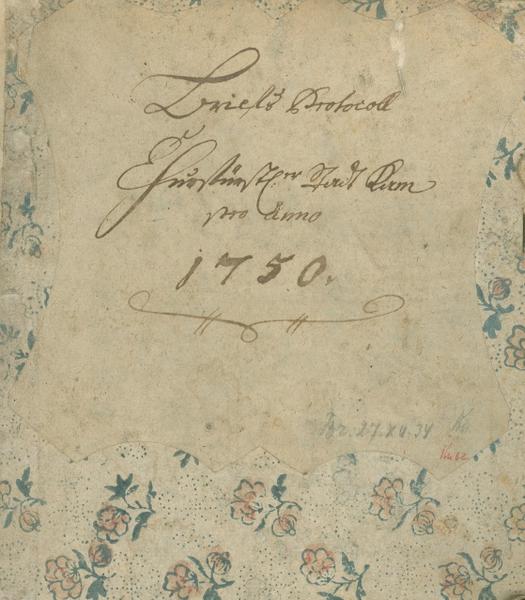 Briefs Protocoll
Churfürstl:er Stadt Kam
pro Anno
1750.
Br. 27.XII.34